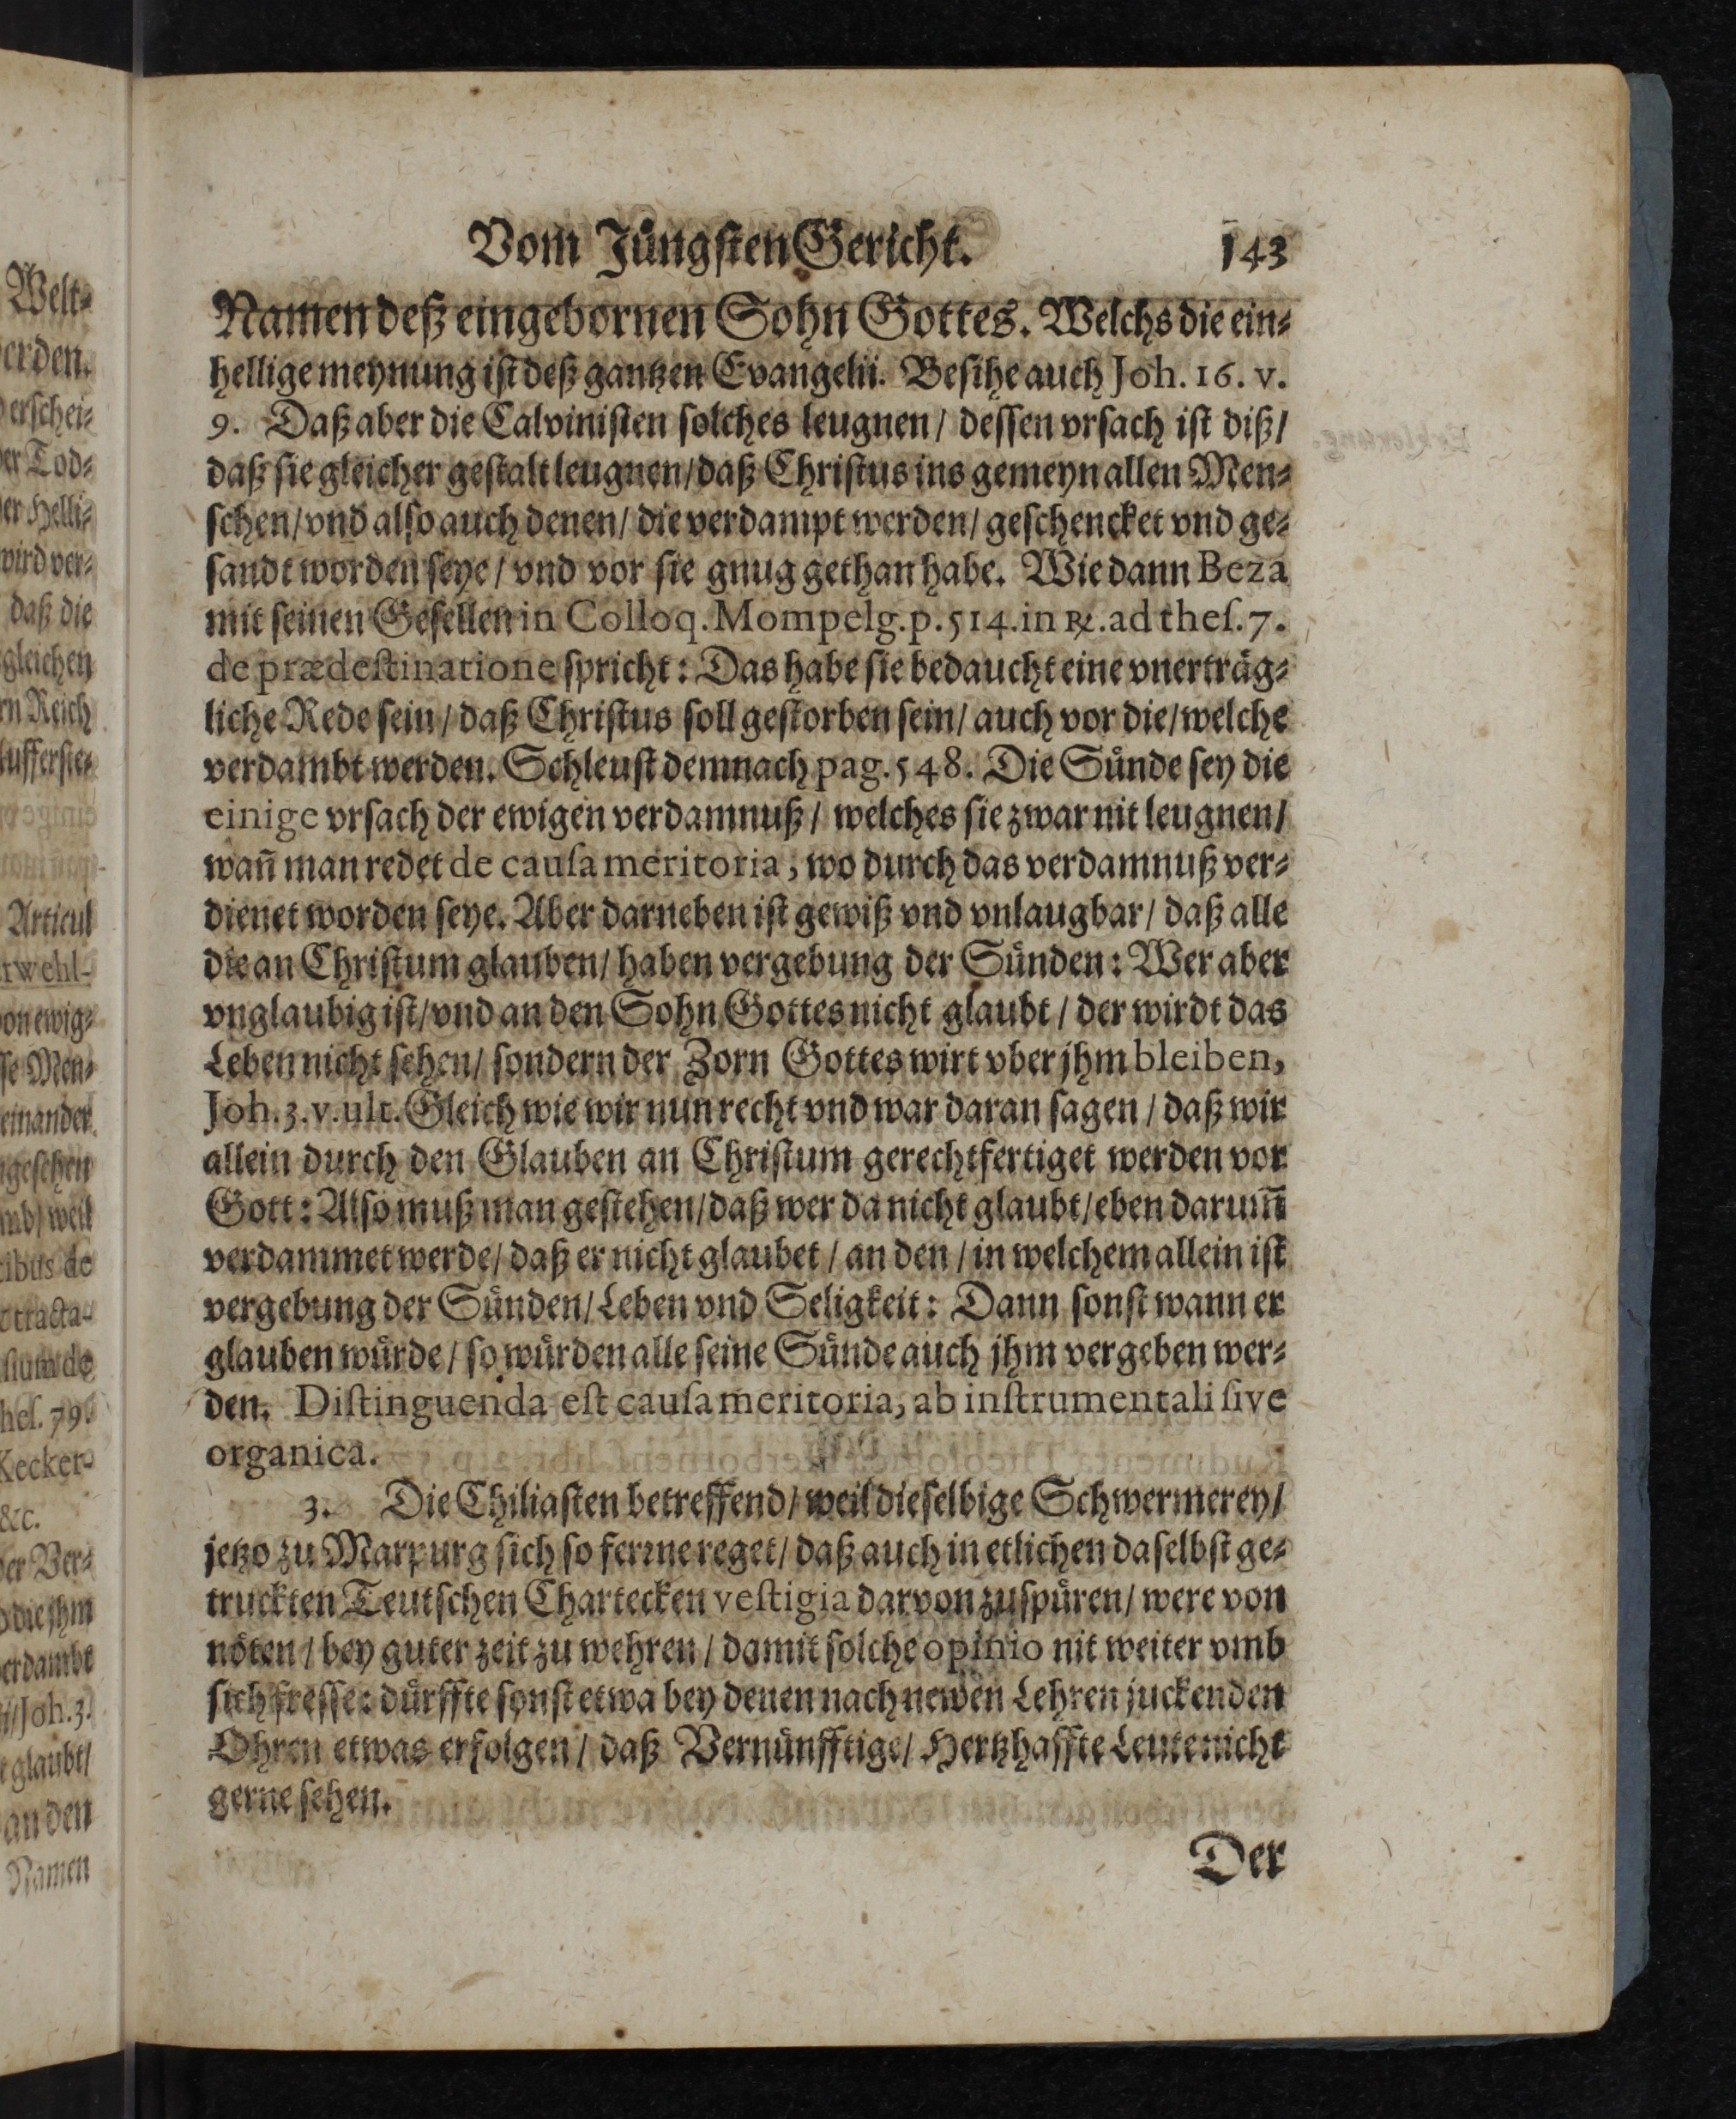 Vom Jüngsten Gericht. 143
Namen deß eingebornen Sohn Gottes. Welchs die ein-
hellige meynung ist deß gantzen Evangelii. Besihe auch Joh. 16. v.
9. Daß aber die Calvinisten solches leugnen / dessen vrsach ist diß /
daß sie gleicher gestalt leugnen / daß Christus ins gemeyn allen Men-
schen / vnd also auch denen / die verdampt werden / geschencket vnd ge-
sandt worden seye / vnd vor sie gnug gethan habe. Wie dann Beza
mit seinen Gesellen in Colloq. Mompelg. p. 514. in ℞. ad thes. 7.
de prædestinatione spricht: Das habe sie bedaucht eine vnerträg-
liche Rede sein / daß Christus soll gestorben sein / auch vor die / welche
verdambt werden. Schleust demnach pag. 548. Die Sünde sey die
einige vrsach der ewigen verdamnuß / welches sie zwar nit leugnen /
wañ man redet de causa meritoria, wo durch das verdamnuß ver-
dienet worden seye. Aber darneben ist gewiß vnd vnlaugbar / daß alle
die an Christum glauben / haben vergebung der Sünden: Wer aber
vnglaubig ist / vnd an den Sohn Gottes nicht glaubt / der wirdt das
Leben nicht sehen / sondern der Zorn Gottes wirt vber jhm bleiben,
Joh. 3. v. ult. Gleich wie wir nun recht vnd war daran sagen / daß wir
allein durch den Glauben an Christum gerechtfertiget werden vor
Gott: Also muß man gestehen / daß wer da nicht glaubt / eben darum̃
verdammet werde / daß er nicht glaubet / an den / in welchem allein ist
vergebung der Sünden / Leben vnd Seligkeit: Dann sonst wann er
glauben würde / so würden alle seine Sünde auch jhm vergeben wer-
den. Distinguenda est causa meritoria, ab instrumentali sive
organica.
3. Die Chiliasten betreffend / weil dieselbige Schwermerey /
jetzo zu Marpurg sich so ferrne reget / daß auch in etlichen daselbst ge-
truckten Teutschen Chartecken vestigia darvon zuspüren / were von
nöten / bey guter zeit zu wehren / damit solche opinio nit weiter vmb
sich fresse: dürffte sonst etwa bey denen nach newen Lehren juckenden
Ohren etwas erfolgen / daß Vernünfftige / Hertzhaffte Leute nicht
gerne sehen.
Der